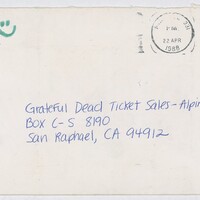 PM
22 APR
1988
Grateful Dead Ticket Sales-Alpin
Box C-S 8190
San Raphael, CA 94912